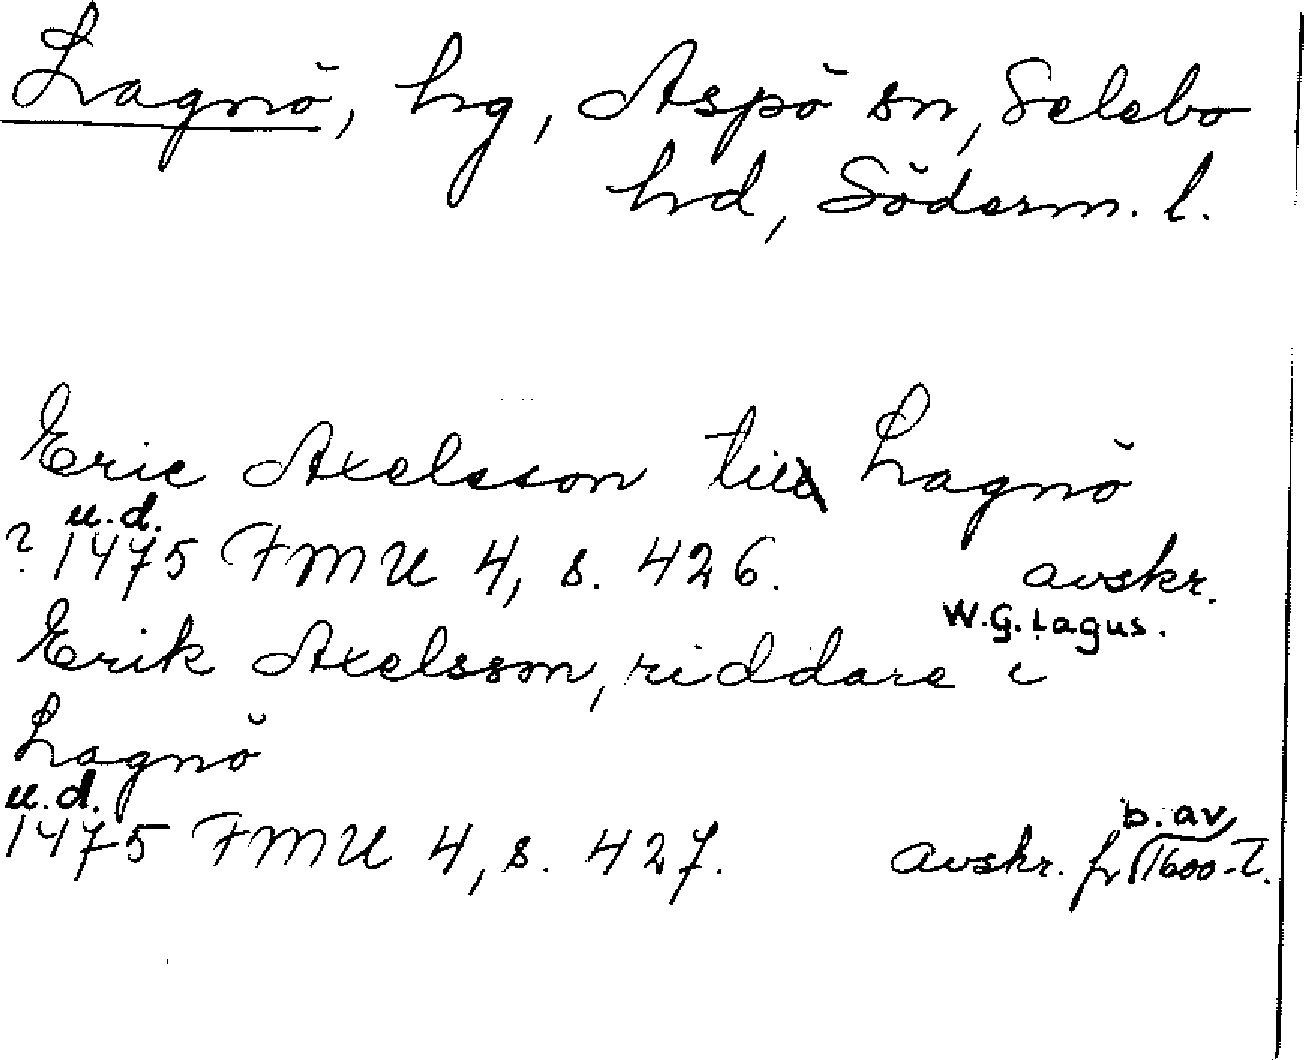 Lagnö, hg, Aspö sn, Selebo
hd, Söderm. l.
Eric Axelsson till Lagnö
u.d.
? 1475 FMU 4, s. 426. avskr.
W.G. Lagus.
Erik Axelsson, riddare i
Lagnö
u.d.
b. av
1475 FMU 4, s. 427. avskr. fr 1600-t.